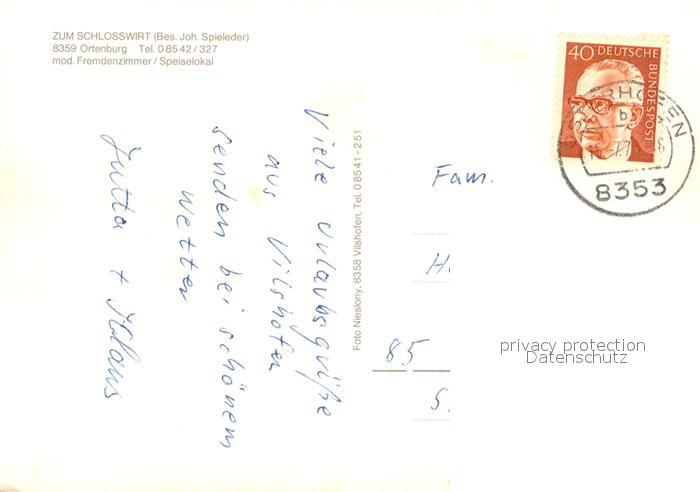 ZUM SCHLOSSWIRT (Bes. Joh. Spieleder)
8359 Ortenburg Tel. 0 85 42 / 327
mod. Fremdenzimmer / Speiselokal
Viele Urlaubsgrüße
aus Vilshofen
senden bei schönem
Wetter
Jutta + Klaus
Foto Nieslony, 8358 Vilshofen, Tel. 0 85 41 - 2 51
40 DEUTSCHE
BUNDESPOST
8353
Fam.
H.
85
S.
privacy protection
Datenschutz